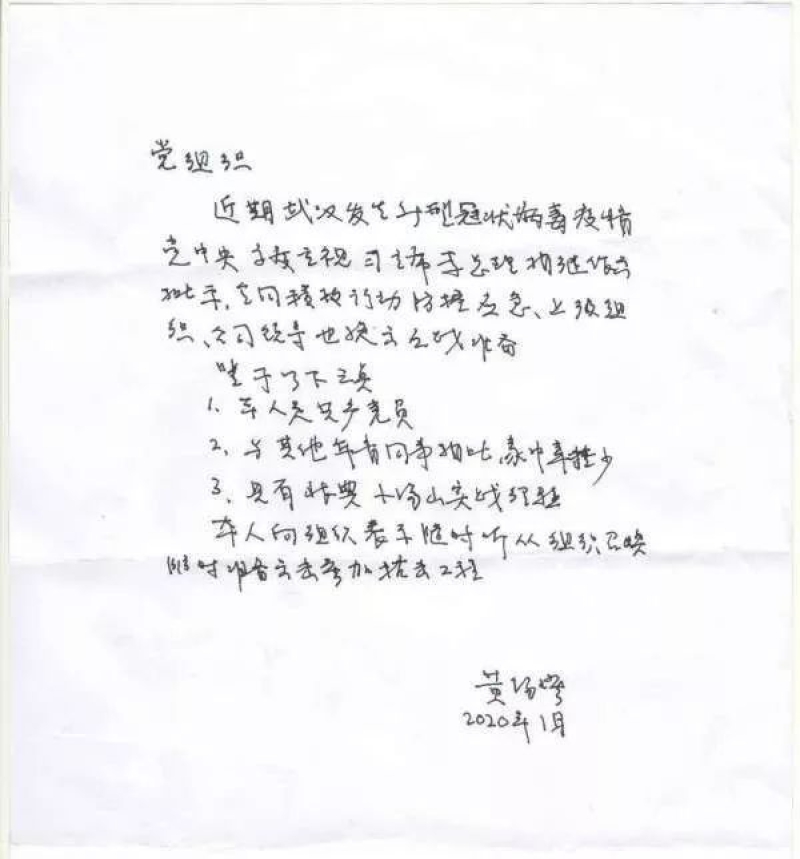 党组织
近期武汉发生新型冠状病毒疫情
党中央高度重视习主席李总理相继作出
批示,全国积极行动防控应急、上级组
织、公司领导也换文应战准备
鉴于以下三点
1、本人是共产党员
2、与其他年青同事相比,家中牵挂少
3、具有非典小汤山实战经验
本人向组织表示随时听从组织召唤
随时准备出击参加抗击工程
黄
2020年1月